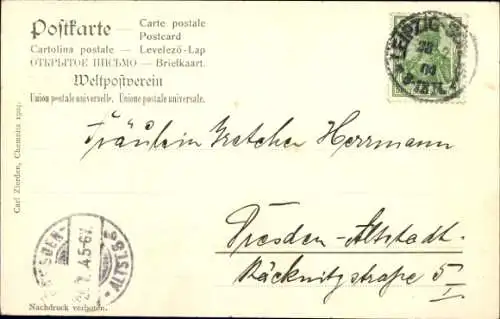 Postkarte — Carte postale
Postcard
Cartolina postale — Levelező-Lap
ОТКРЫТОЕ ПИСЬМО — Briefkaart.
Weltpostverein
Union postale universelle. Unione postale universale.
LEIPZIG
Fräulein Gretchen Herrmann
Dresden-Altstadt.
Räcknitzstraße 5
I
Carl Zierden, Chemnitz
ALTST.
Nachdruck verboten.